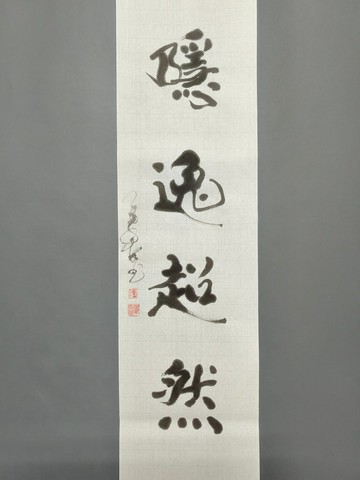 隱逸超然